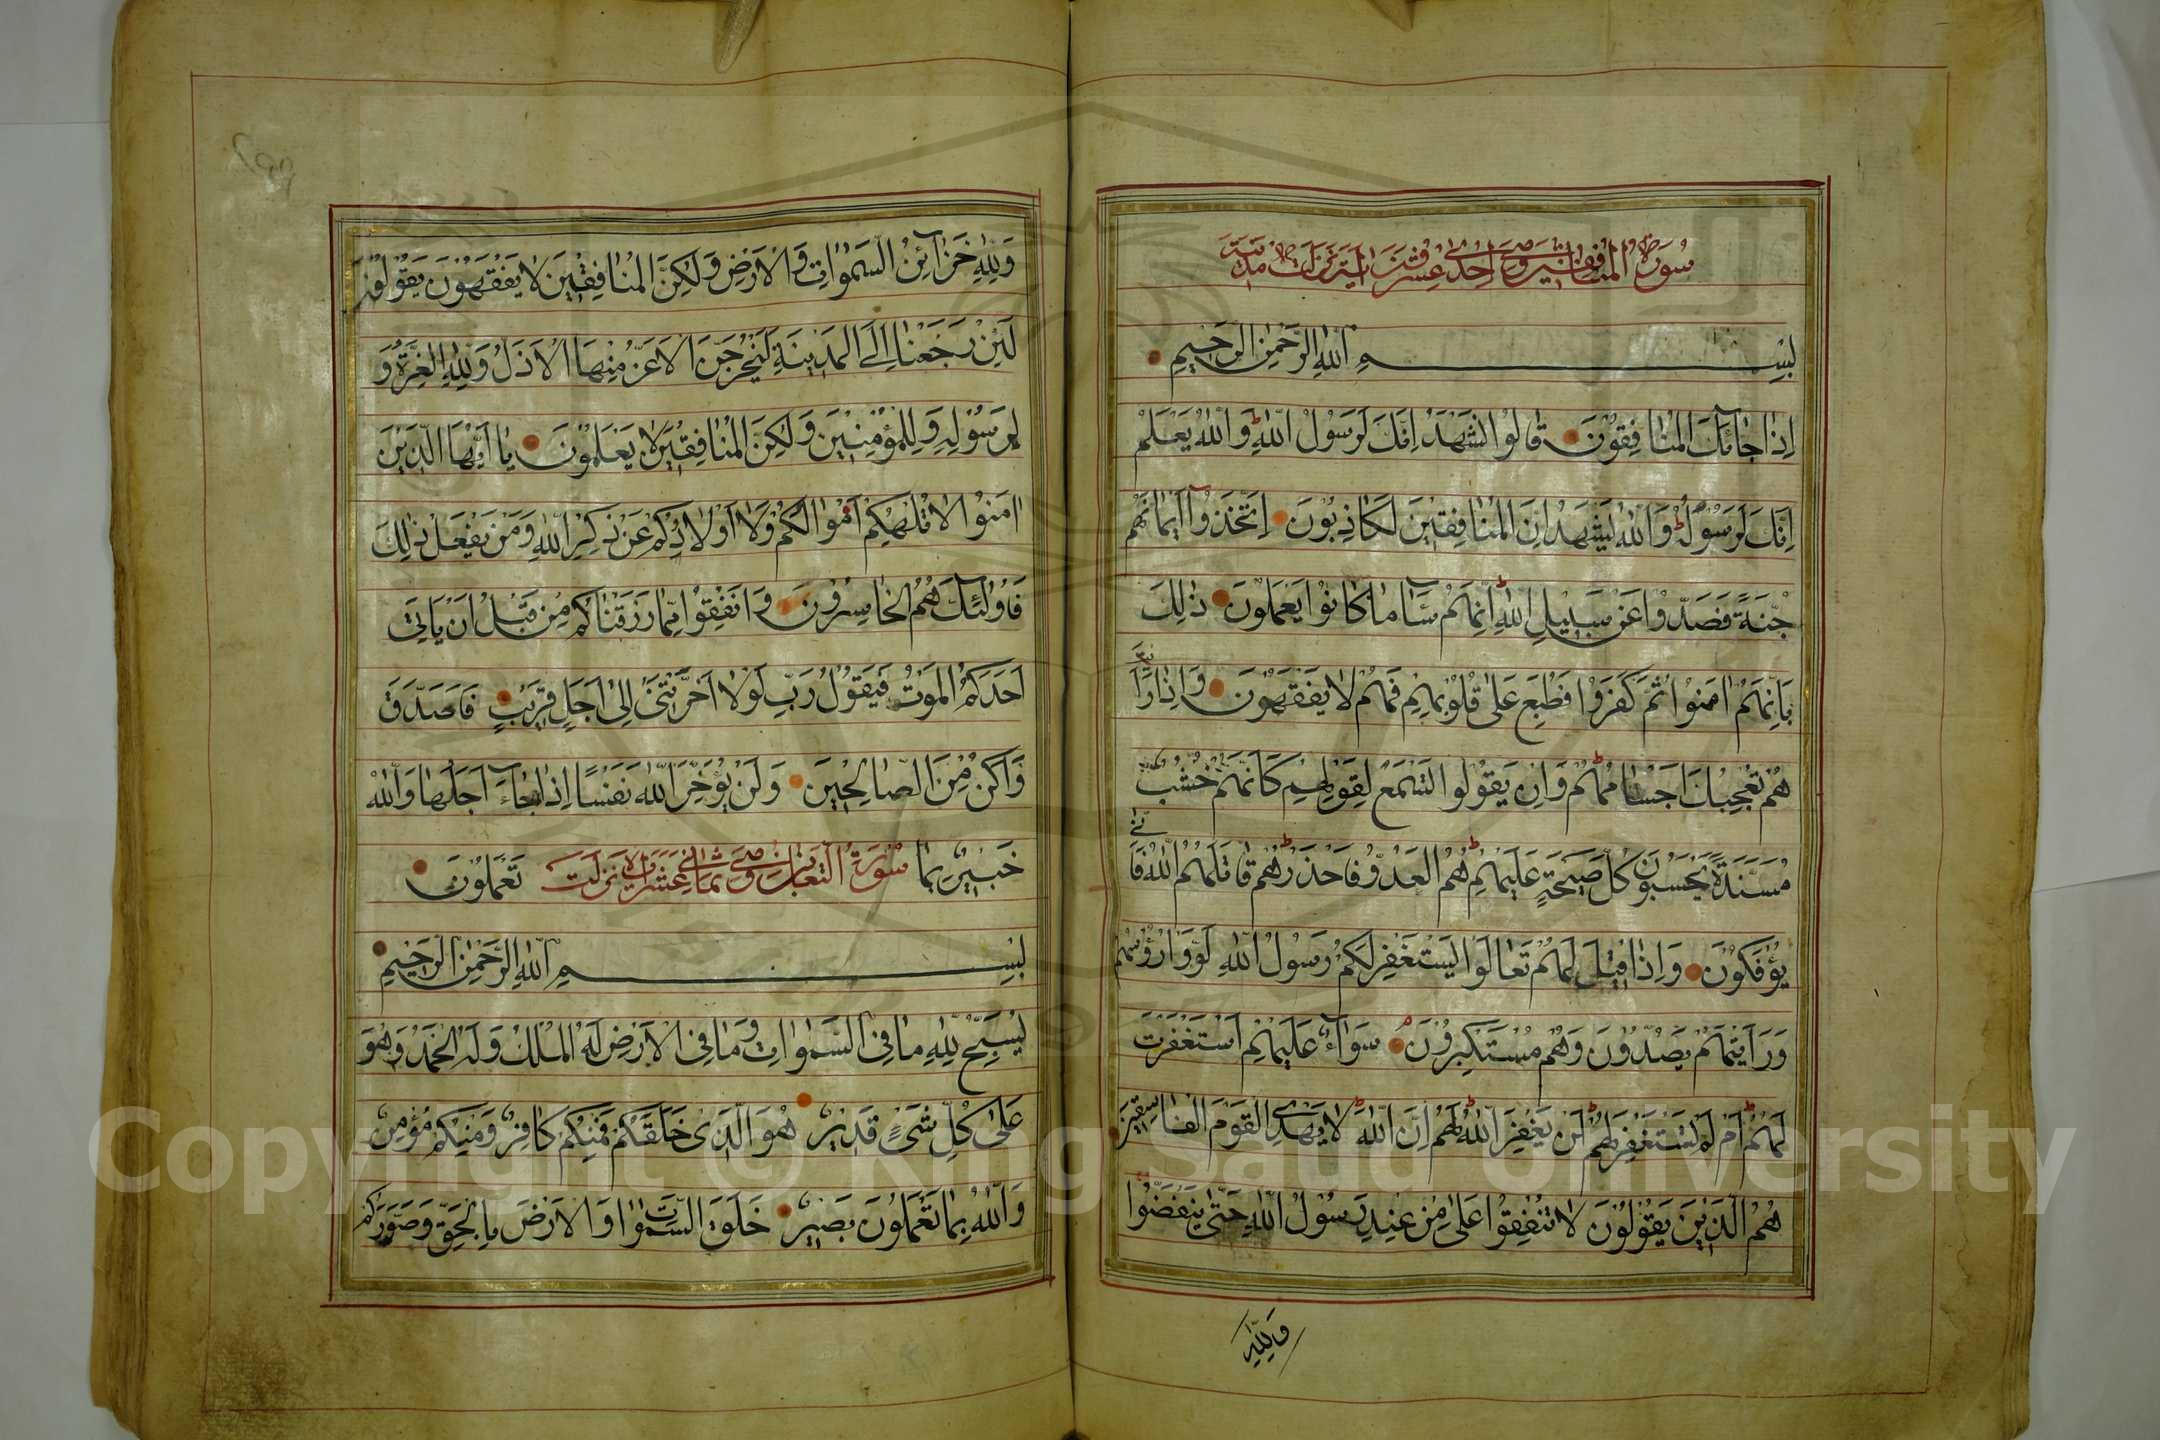 سورة المنافقين وهي احدى عشرة اية نزلت مدنية
بسم الله الرحمن الرحيم
اِذَا جَائَكَ الْمُنَافِقُونَ قَالُوا نَشْهَدُ اِنَّكَ لَرَسُولُ اللّٰهِ وَاللّٰهُ يَعْلَمُ
اِنَّكَ لَرَسُولُهُ وَاللّٰهُ يَشْهَدُ اِنَّ الْمُنَافِقِينَ لَكَاذِبُونَ اِتَّخَذُوا اَيْمَانَهُمْ
جُنَّةً فَصَدُّوا عَنْ سَبِيلِ اللّٰهِ اِنَّهُمْ سَآءَ مَا كَانُوا يَعْمَلُونَ ذٰلِكَ
بِاَنَّهُمْ اٰمَنُوا ثُمَّ كَفَرُوا فَطُبِعَ عَلٰى قُلُوبِهِمْ فَهُمْ لَا يَفْقَهُونَ وَاِذَا رَاَيْتَ
هُمْ تُعْجِبُكَ اَجْسَامُهُمْ وَاِنْ يَقُولُوا تَسْمَعْ لِقَوْلِهِمْ كَاَنَّهُمْ خُشُبٌ
مُسَنَّدَةٌ يَحْسَبُونَ كُلَّ صَيْحَةٍ عَلَيْهِمْ هُمُ الْعَدُوُّ فَاحْذَرْهُمْ قَاتَلَهُمُ اللّٰهُ فَاَنّٰى
يُؤْفَكُونَ وَاِذَا قِيلَ لَهُمْ تَعَالَوْا يَسْتَغْفِرْ لَكُمْ رَسُولُ اللّٰهِ لَوَّوْا رُؤُسَهُمْ
وَرَاَيْتَهُمْ يَصُدُّونَ وَهُمْ مُسْتَكْبِرُونَ سَوَآءٌ عَلَيْهِمْ اَسْتَغْفَرْتَ
لَهُمْ اَمْ لَمْ تَسْتَغْفِرْ لَهُمْ لَنْ يَغْفِرَ اللّٰهُ لَهُمْ اِنَّ اللّٰهَ لَا يَهْدِى الْقَوْمَ الْفَاسِقِينَ
هُمُ الَّذِينَ يَقُولُونَ لَا تُنْفِقُوا عَلٰى مَنْ عِنْدَ رَسُولِ اللّٰهِ حَتّٰى يَنْفَضُّوا
وَلِلّٰهِ
وَلِلّٰهِ خَزَآئِنُ السَّمٰوَاتِ وَالْاَرْضِ وَلٰكِنَّ الْمُنَافِقِينَ لَا يَفْقَهُونَ يَقُولُونَ
لَئِنْ رَجَعْنَا اِلَى الْمَدِينَةِ لَيُخْرِجَنَّ الْاَعَزُّ مِنْهَا الْاَذَلَّ وَلِلّٰهِ الْعِزَّةُ وَ
لِرَسُولِهِ وَلِلْمُؤْمِنِينَ وَلٰكِنَّ الْمُنَافِقِينَ لَا يَعْلَمُونَ يَا اَيُّهَا الَّذِينَ
اٰمَنُوا لَا تُلْهِكُمْ اَمْوَالُكُمْ وَلَا اَوْلَادُكُمْ عَنْ ذِكْرِ اللّٰهِ وَمَنْ يَفْعَلْ ذٰلِكَ
فَاُولٰئِكَ هُمُ الْخَاسِرُونَ وَاَنْفِقُوا مِمَّا رَزَقْنَاكُمْ مِنْ قَبْلِ اَنْ يَاْتِىَ
اَحَدَكُمُ الْمَوْتُ فَيَقُولُ رَبِّ لَوْلَا اَخَّرْتَنِى اِلٰى اَجَلٍ قَرِيبٍ فَاَصَّدَّقَ
وَاَكُنْ مِنَ الصَّالِحِينَ وَلَنْ يُؤَخِّرَ اللّٰهُ نَفْسًا اِذَا جَآءَ اَجَلُهَا وَاللّٰهُ
خَبِيرٌ بِمَا تَعْمَلُونَ سورة التغابن وهي ثماني عشر اية نزلت
بسم الله الرحمن الرحيم
يُسَبِّحُ لِلّٰهِ مَا فِى السَّمٰوَاتِ وَمَا فِى الْاَرْضِ لَهُ الْمُلْكُ وَلَهُ الْحَمْدُ وَهُوَ
عَلٰى كُلِّ شَىْءٍ قَدِيرٌ هُوَ الَّذِى خَلَقَكُمْ فَمِنْكُمْ كَافِرٌ وَمِنْكُمْ مُؤْمِنٌ
وَاللّٰهُ بِمَا تَعْمَلُونَ بَصِيرٌ خَلَقَ السَّمٰوَاتِ وَالْاَرْضَ بِالْحَقِّ وَصَوَّرَكُمْ
Copyright © King Saud University